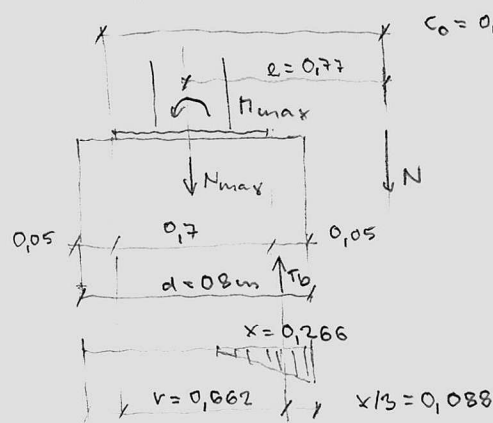 c₀ = 0,
e = 0,77
Mmax
Nmax
N
0,05
0,7
0,05
d = 0,8 m
Tb
x = 0,266
r = 0,662
x/3 = 0,088